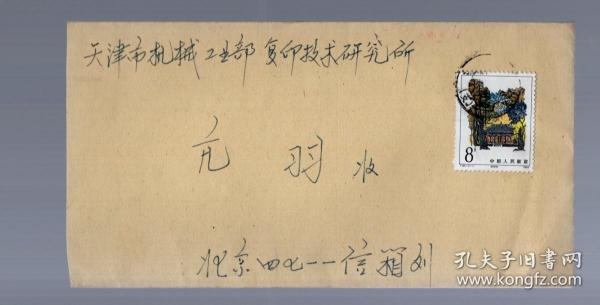 天津市机械工业部复印技术研究所
元羽收
北京四七一一信箱刘
8分
中国人民邮政
孔夫子旧书网
www.kongfz.com